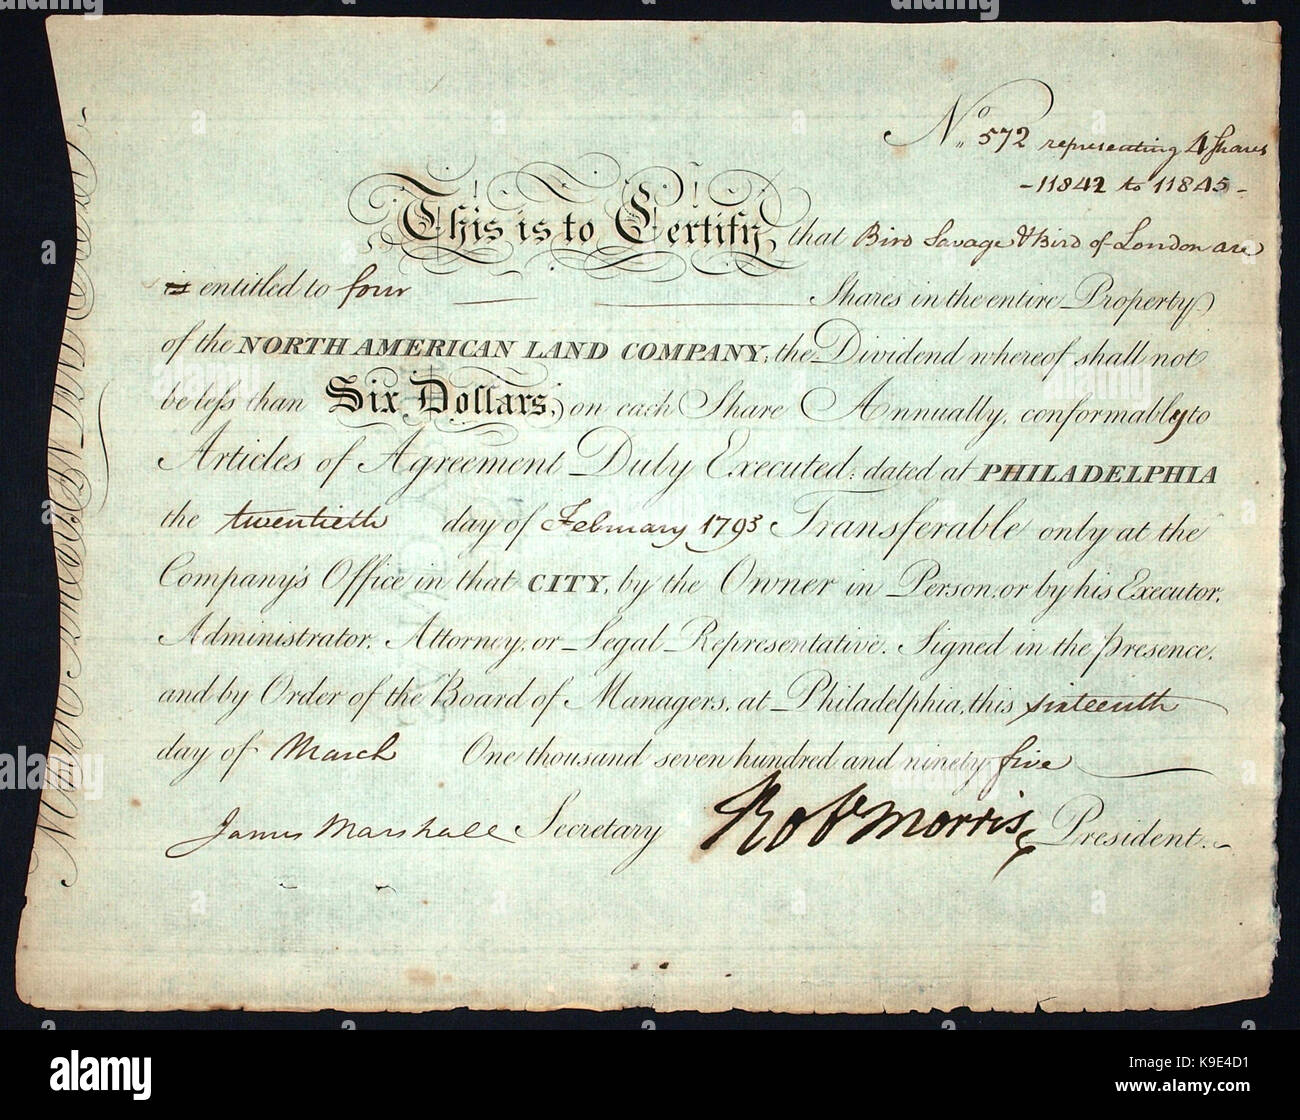 No. 572 representing 4 Shares
- 11842 to 11845 -
This is to Certify, that Bird Savage & Bird of London are
is entitled to four Shares in the entire Property
of the NORTH AMERICAN LAND COMPANY; the Dividend whereof shall not
be less than Six Dollars, on each Share Annually, conformably to
Articles of Agreement Duly Executed; dated at PHILADELPHIA
the twentieth day of February 1793 Transferable only at the
Company's Office in that CITY, by the Owner in Person, or by his Executor,
Administrator, Attorney, or Legal Representative. Signed in the presence,
and by Order of the Board of Managers, at Philadelphia, this sixteenth
day of March One thousand seven hundred and ninety five
James Marshall Secretary Robt Morris President.
alamy
Image ID: K9E4D1
www.alamy.com